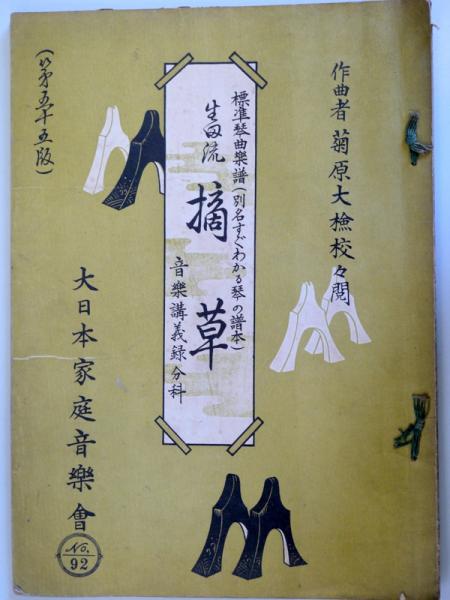 作曲者 菊原大檢校々閲
標準琴曲樂譜(別名すぐわかる琴の譜本)
生田流 摘草
音樂講義錄分科
(第五十五版)
大日本家庭音樂會
No.
92